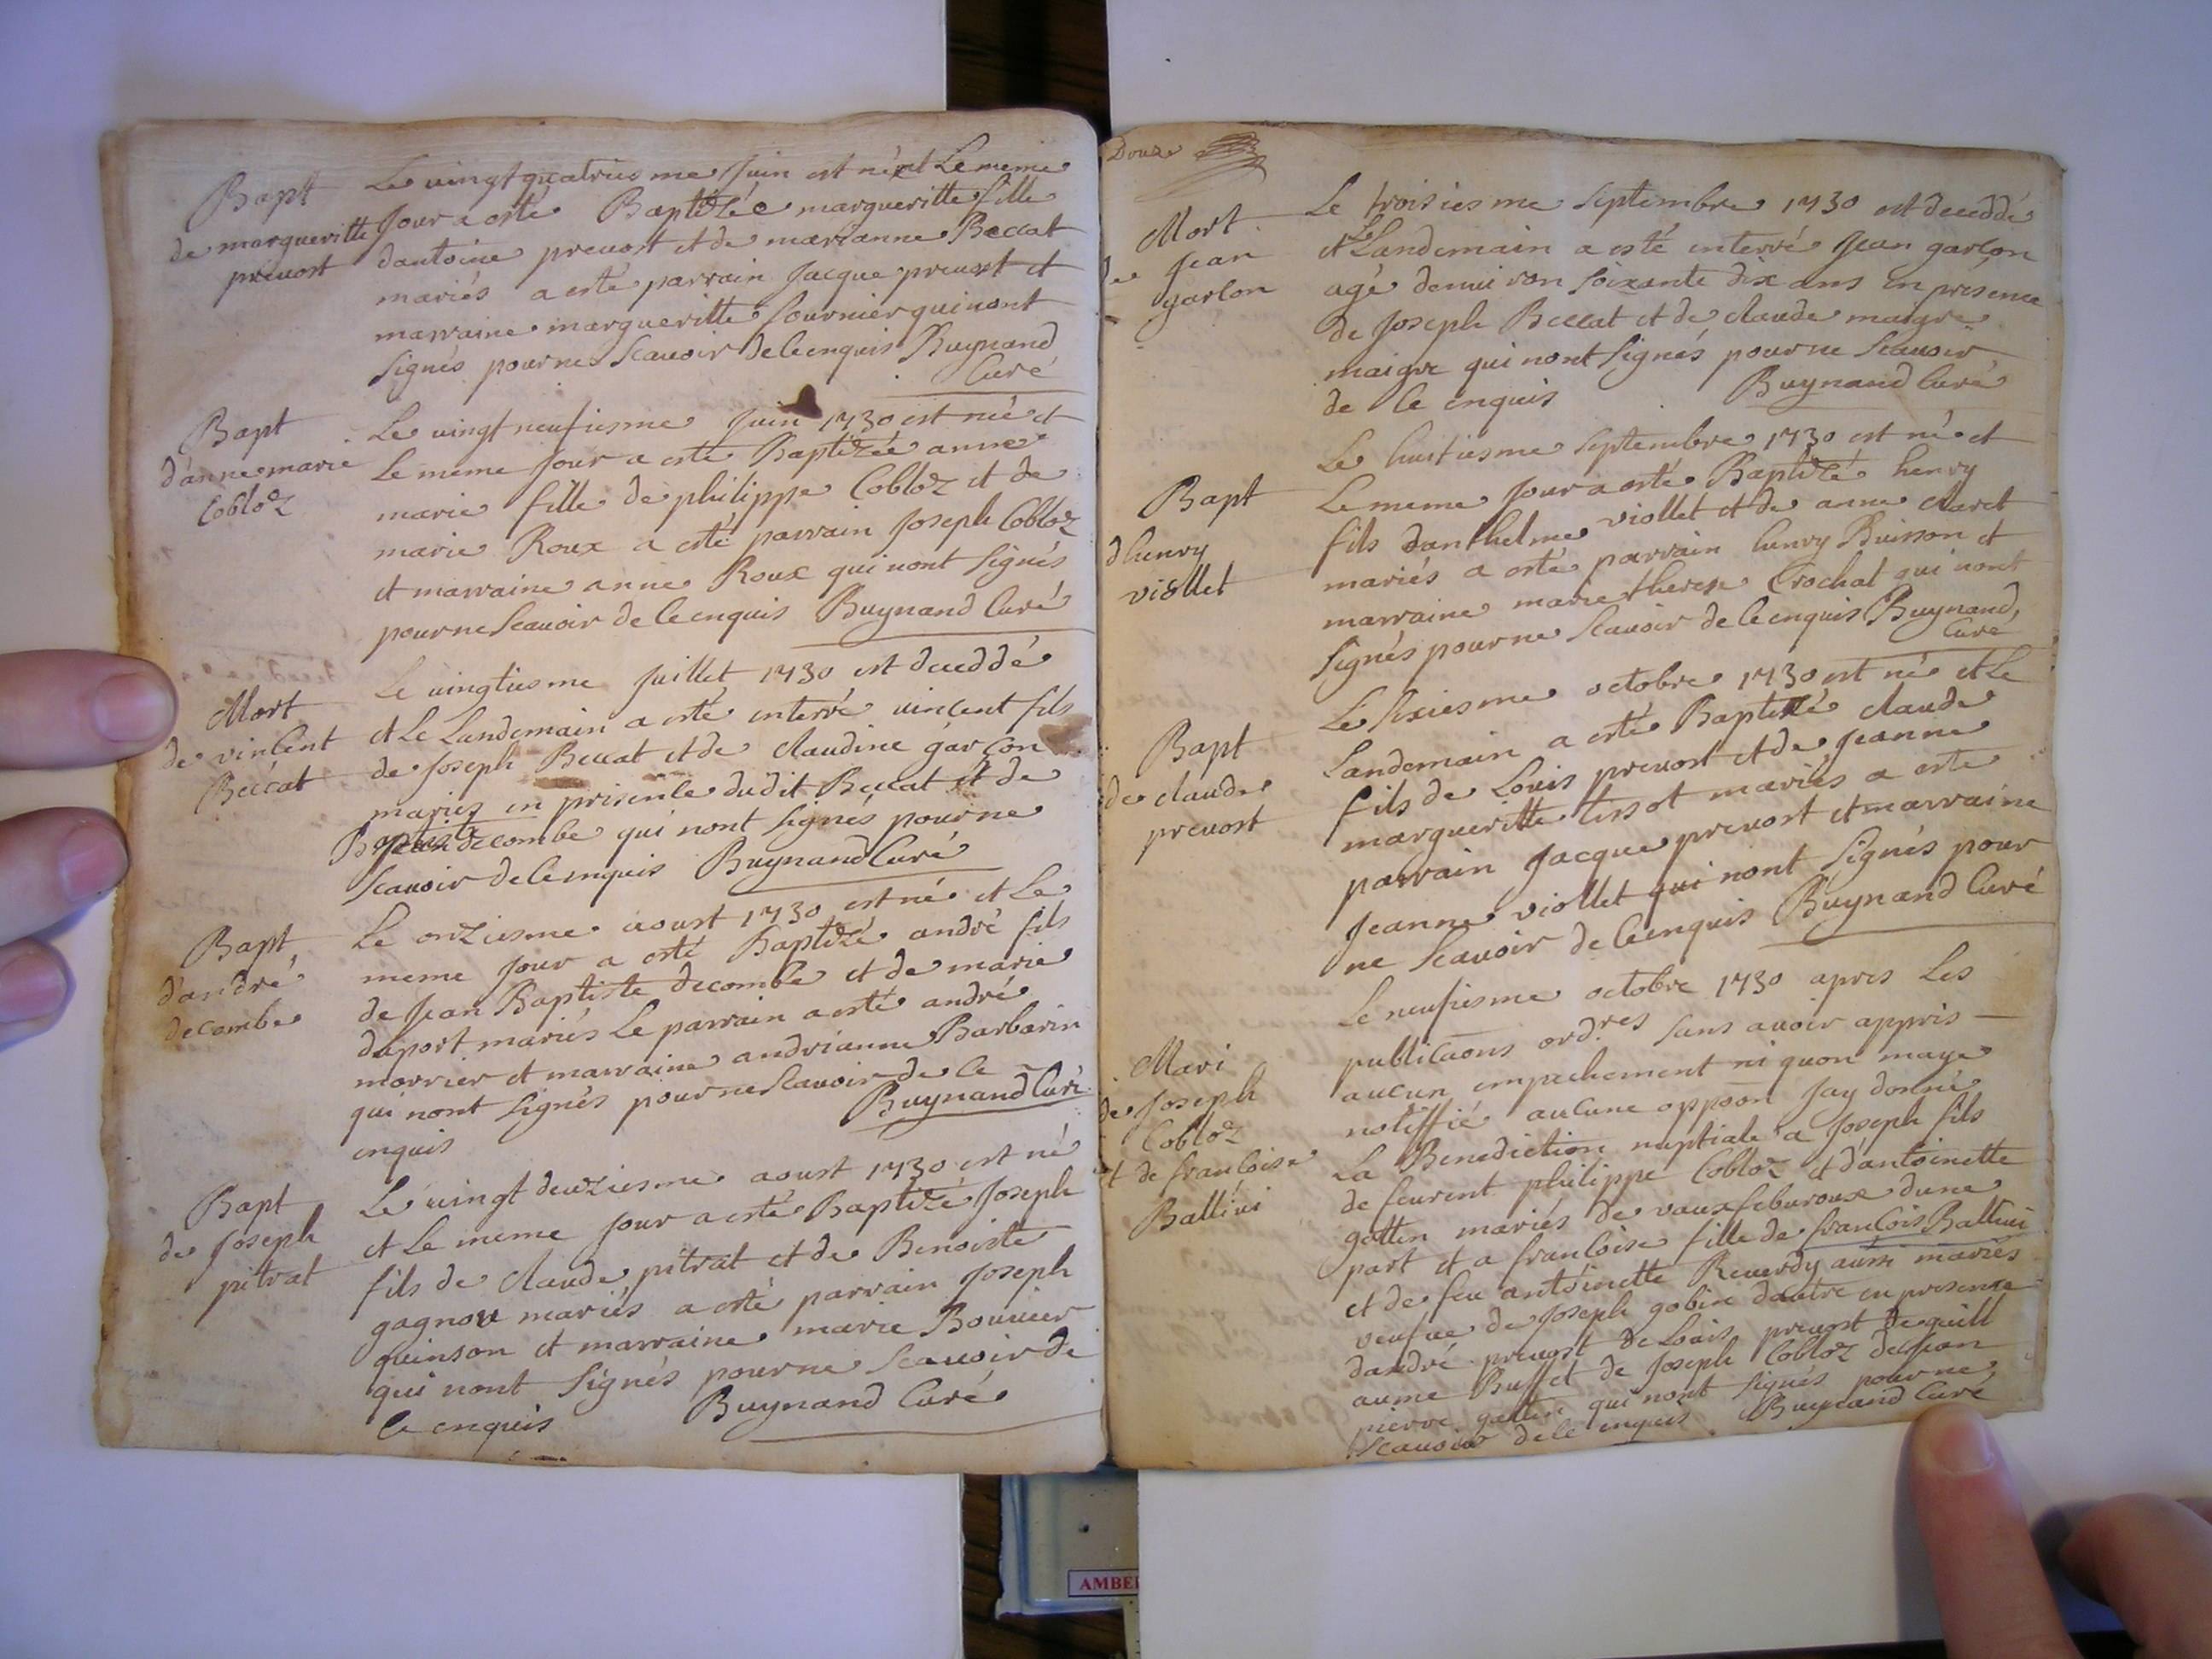 Bapt
de margueritte
prevost
Le vingt quatriesme Juin est née et Le meme
Jour a esté Baptizée margueritte fille
dantoine prevost et de marianne Beccat
mariés a esté parrain Jacque prevost et
marraine margueritte fournier qui nont
signés pour ne scavoir de ce enquis Buynand
Curé
Bapt
d'anne marie
Cobloz
Le vingt neufiesme Juin 1730 est née et
Le meme Jour a esté Baptizée anne
marie fille de philippe Cobloz et de
marie Roux a esté parrain Joseph Cobloz
et marraine anne Roux qui nont signés
pour ne scavoir de ce enquis Buynand Curé
Mort
de vincent
Beccat
Le vingtiesme Juillet 1730 est deceddé
et Le Landemain a esté enterré vincent fils
de Joseph Beccat et de claudine garçon
mariés en presence dudit Beccat et de
Baptiste decombe qui nont signés pour ne
scavoir de ce enquis Buynand Curé
Bapt
d'andré
decombe
Le onziesme aoust 1730 est né et Le
meme Jour a esté Baptizé andré fils
de Jean Baptiste decombe et de marie
duport mariés Le parrain a esté andré
morrier et marraine andrianne Barbarin
qui nont signés pour ne scavoir de ce
enquis Buynand Curé
Bapt
de Joseph
pitrat
Le vingt deuziesme aoust 1730 est né
et Le meme Jour a esté Baptizé Joseph
fils de claude pitrat et de Benoiste
gagnou mariés a esté parrain Joseph
quinson et marraine marie Bouvier
qui nont signés pour ne scavoir de
ce enquis Buynand Curé
Douze
Mort
de Jean
garcon
Le troisiesme septembre 1730 est deceddé
et Le Landemain a esté enterré Jean garcon
agé denviron soixante dix ans en présence
de Joseph Beccat et de claude maigre
maigre qui nont signés pour ne scavoir
de ce enquis Buynand Curé
Bapt
dhenry
viollet
Le huitiesme septembre 1730 est né et
Le meme Jour a esté Baptizé henry
fils danthelme viollet et de anne claret
mariés a esté parrain henry Buisson et
marraine marie therese Crochat qui nont
signés pour ne scavoir de ce enquis Buynand
Curé
Bapt
de claude
prevost
Le sixiesme octobre 1730 est né et Le
Landemain a esté Baptizé claude
fils de Louis prevost et de Jeanne
margueritte tissot mariés a esté
parrain Jacque prevost et marraine
Jeanne viollet qui nont signés pour
ne scavoir de ce enquis Buynand Curé
Mari
de Joseph
Cobloz
et de francoise
Ballivi
Le neufiesme octobre 1730 apres Les
publicaons ord.res sans avoir appris
aucun empechement ni quon maye
notiffié aucune oppoon Jay donné
La Benediction nuptiale a Joseph fils
de feurent philippe Cobloz et dantoinette
gotten mariés de vaux feburoux dune
part et a francoise fille de francois Ballivi
et de feu antoinette Reverdy aussi mariés
veufve de Joseph gobin dautre en presence
dandré prevost de Louis prevost de guill
aume Buffet de Joseph Cobloz de Jean
pierre qui nont signés pour ne
scavoir de ce enquis Buynand Curé
AMBE